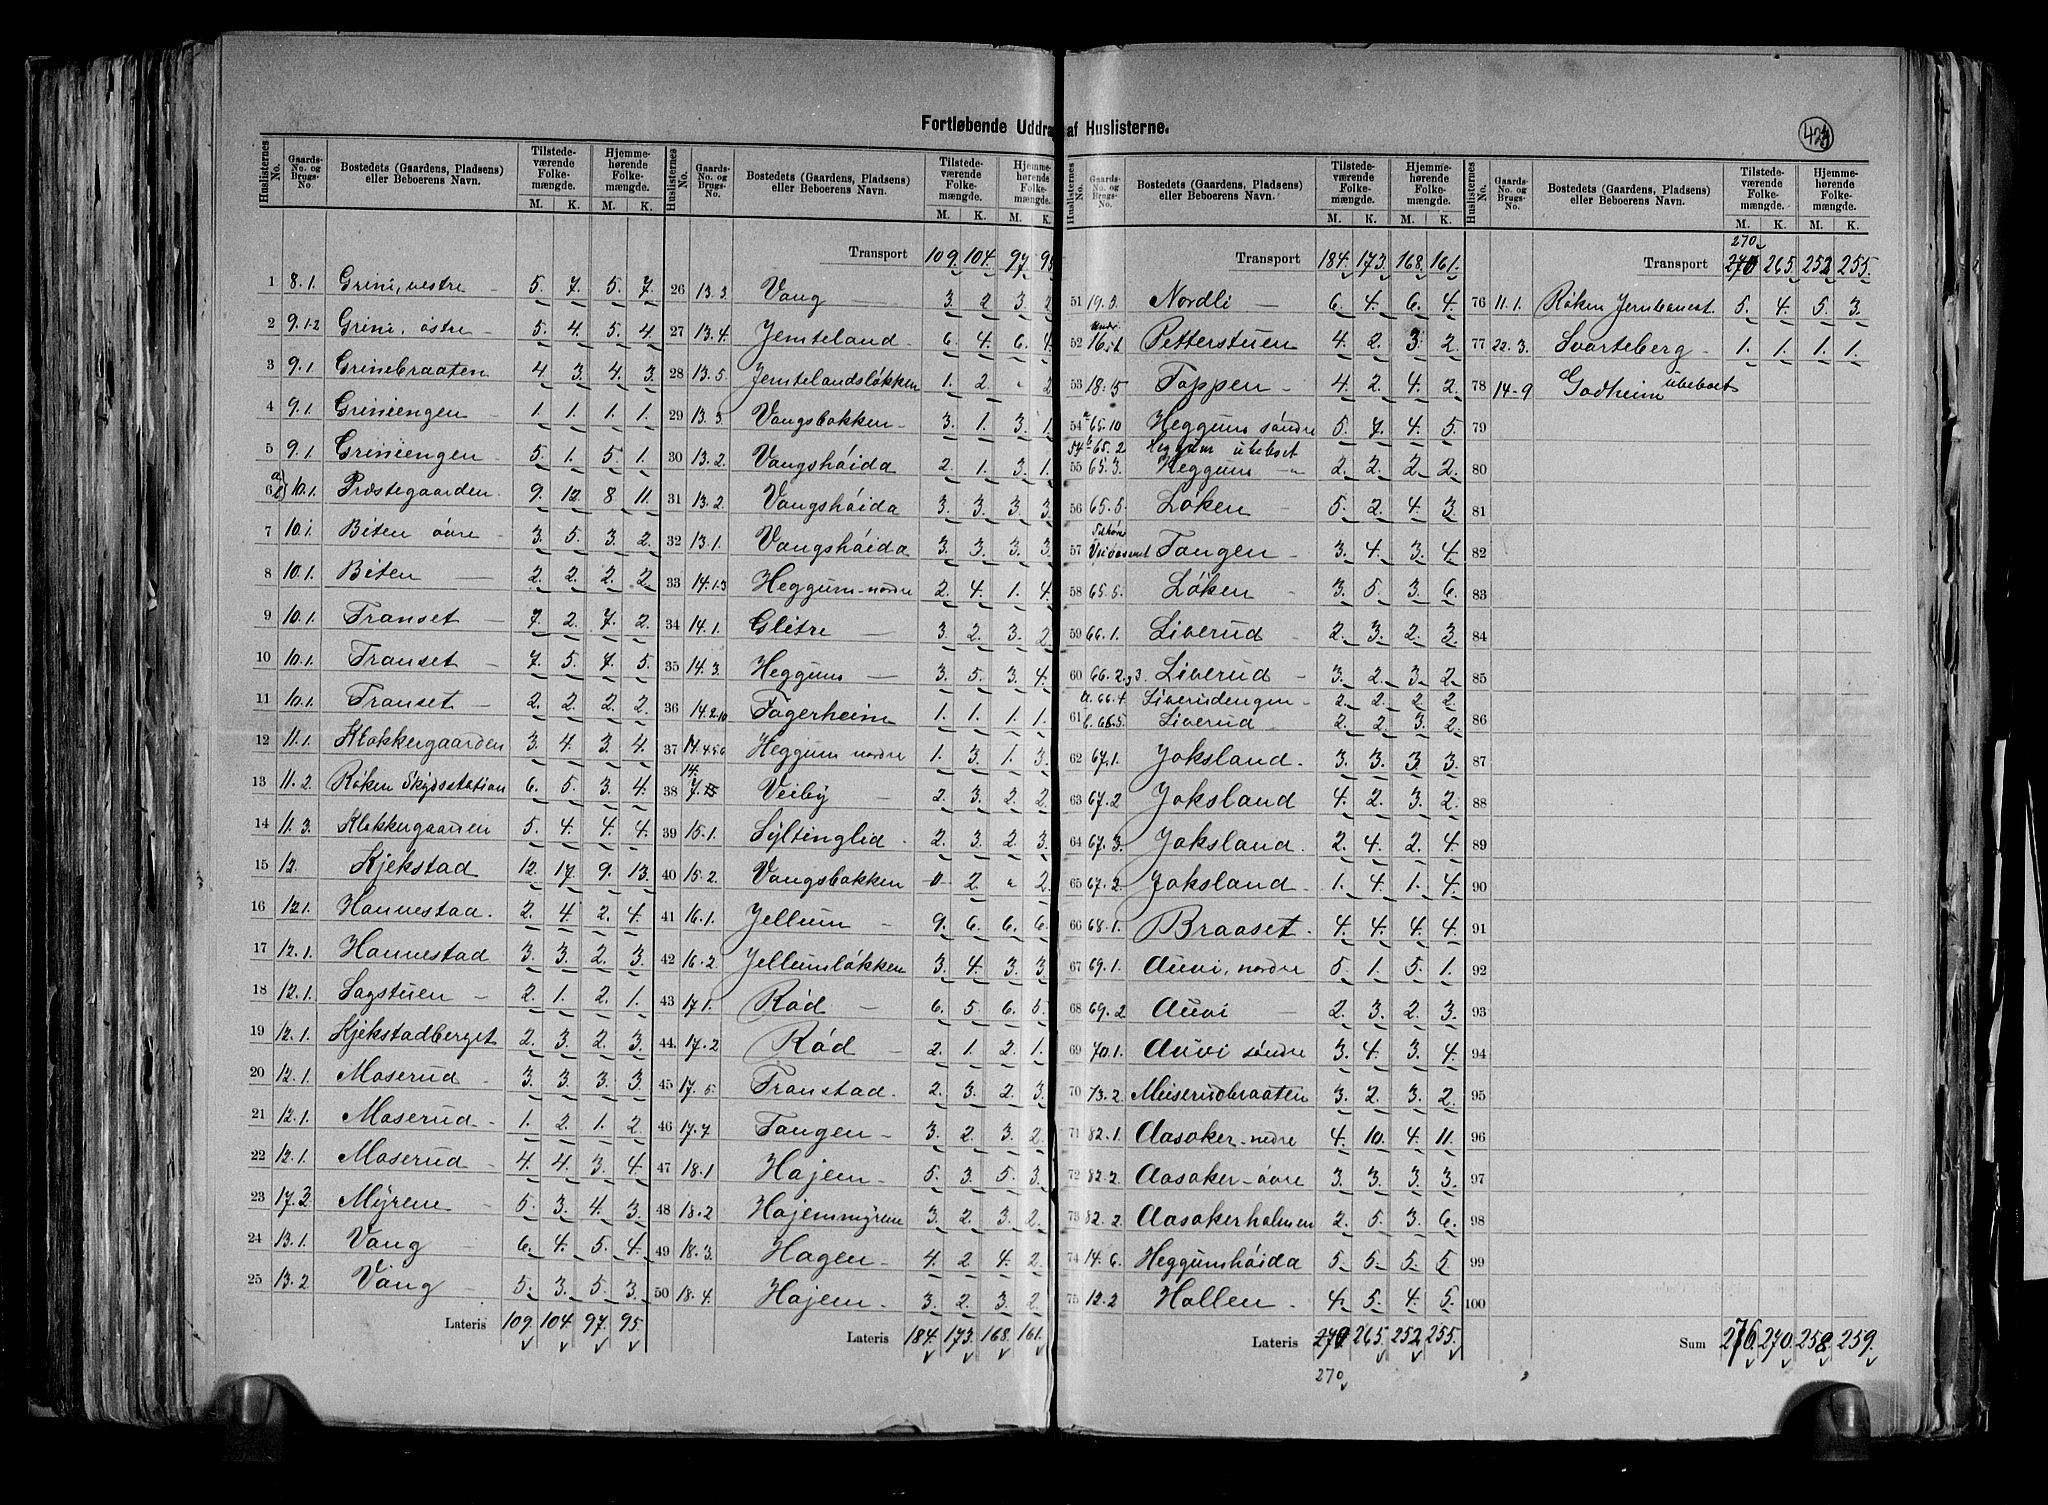 Fortløbende Uddra af Huslisterne.
403
Huslisternes No. | Gaards-No. og Brugs-No. | Bostedets (Gaardens, Pladsens) eller Beboerens Navn. | Tilstedeværende Folkemængde. M. K. | Hjemmehørende Folkemængde. M. K.
1 8.1. Grini, vestre 5. 7. 5. 7.
2 9.1-2 Grini, østre 5. 4. 5. 4
3 9.1 Grinebraaten 4 3. 4. 3.
4 9.1. Griniengen 1. 1. 1. 1.
5 9.1 Griniengen 5. 1. 5. 1.
6 10.1. Præstegaarden 9. 12. 8 11.
7 10.1. Biten øvre 3. 5. 3. 2.
8 10.1. Biten 2. 2. 2. 2
9 10.1. Transet 7. 2. 7. 2.
10 10.1. Transet 7. 5. 7. 5.
11 10.1. Transet 2. 2. 2. 2.
12 11.1. Klokkergaarden 3. 4. 3. 4.
13 11.2. Røken Skydsstation 6. 5. 3. 4.
14 11.3. Klokkergaarden 5. 4. 4. 4.
15 12. Kjekstad 12. 17. 9. 13.
16 12.1. Hannestad. 2. 4. 2. 4.
17 12.1. Hannestad 3. 3. 2. 3.
18 12.1. Sagstuen 2. 1. 2. 1.
19 12.1. Kjekstadberget 2. 3. 2. 3.
20 12.1. Maserud 3. 3. 3. 3.
21 12.1. Maserud 1. 2. 1. 2.
22 12.1. Maserud 4. 4. 3. 4.
23 17.3. Myrene 5. 3. 4. 3.
24 13.1. Vang 6. 4. 5. 4.
25 13.2 Vang 5. 3. 5. 3.
Lateris 109. 104. 97. 95.
Huslisternes No. | Gaards-No. og Brugs-No. | Bostedets (Gaardens, Pladsens) eller Beboerens Navn. | Tilstedeværende Folkemængde. M. K. | Hjemmehørende Folkemængde. M. K.
Transport 109. 104. 97. 95
26 13.3. Vang 3. 2 3. 2
27 13.4. Jemteland 6. 4. 6. 4.
28 13.5. Jemtelandsløkken 1. 2. " 2
29 13.3. Vangsbakken 3. 1. 3. 1.
30 13.2. Vangshøida 2. 1. 3. 1.
31 13.2. Vangshøida 3. 3. 3. 3.
32 13.1. Vangshøida 3. 3. 3. 3.
33 14.1.3 Heggum nordre 2. 4. 1. 4.
34 14.1. Glitre 3. 2. 3. 2
35 14.3. Heggum 3. 5. 3. 4.
36 14.2.10 Fagerheim 1. 1. 1. 1.
37 14.4.5.6 Heggum nordre 1. 3. 1. 3.
38 14. 7. Veiby 2. 3. 2. 2.
39 15.1. Syltinglid 2. 3. 2. 3.
40 15.2. Vangsbakken 0. 2. " 2.
41 16.1. Jellum 9. 6. 6. 6.
42 16.2 Jellumsløkken 3. 4. 3. 3.
43 17.1. Rød 6. 5. 6. 5.
44. 17.2 Rød 2. 1. 2. 1.
45 17.5. Transtad. 2. 3. 2. 3.
46 17.7. Tangen 3. 2. 3. 2.
47 18.1 Hajem 5. 3. 5. 3.
48 18.2 Hajemmyrene 3. 2. 3. 2.
49 18.3. Hagen 4. 2 4. 2
50 18.4. Hajem 3. 2. 3. 2.
Lateris 184. 173. 168. 161.
Huslisternes No. | Gaards-No. og Brugs-No. | Bostedets (Gaardens, Pladsens) eller Beboerens Navn. | Tilstedeværende Folkemængde. M. K. | Hjemmehørende Folkemængde. M. K.
Transport 184. 173. 168. 161.
51 19.3. Nordli 6. 4. 6. 4.
52 16.1 Petterstuen 4. 2. 3. 2.
53 18.5 Toppen 4. 2. 4. 2.
54 a 65.10 Heggum søndre 5. 7. 4. 5.
54 b 65.2 Heggum ubeboet
55 65.3. Heggum 2. 2. 2. 2.
56 65.5. Løken 5. 2. 4. 3.
57 Tangen 3. 4. 3. 4.
58 65.5. Løken 3. 5. 3. 6.
59 66.1. Liverud 2. 3. 2. 3.
60 66.2,3. Liverud 3. 2. 3. 2.
a. 66.4. Liverudengen 2. 2. 2. 2.
61 b. 66.5. Liverud 2. 2. 3. 2.
62 67.1. Joksland. 3. 3. 3. 3.
63 67.2 Joksland 4. 2. 3. 2.
64 67.3. Joksland. 2. 4. 2. 4.
65 67.2. Joksland 1. 4. 1. 4.
66 68.1. Braaset. 4. 4. 4. 4.
67 69.1. Auvi, nordre 5. 1. 5. 1.
68 69.2 Auvi 2. 3. 2. 3.
69 70.1. Auvi søndre 3. 4. 3. 4.
70 73.2. Meiserudbraaten 3. 2. 3. 2.
71 82.1. Aasaker nedre 4. 10. 4. 11.
72 82.2. Aasaker øvre 3. 3. 3. 3.
73 82.2. Aasakerholmen 2. 5. 3. 6.
74 14.6. Heggumshøida 5. 5. 5. 5
75 12.2 Hallen 4. 5. 4. 5.
Lateris 270 265. 252. 255.
270
Huslisternes No. | Gaards-No. og Brugs-No. | Bostedets (Gaardens, Pladsens) eller Beboerens Navn. | Tilstedeværende Folkemængde. M. K. | Hjemmehørende Folkemængde. M. K.
270
Transport 270 265. 252 255.
76 11.1. Røken Jernbanest. 5. 4. 5. 3.
77 22.3. Svarteberg 1. 1. 1. 1.
78 14-9 Godheim ubeboet
79
80
81
82
83
84
85
86
87
88
89
90
91
92
93
94
95
96
97
98
99
100
Sum 276. 270. 258. 259.